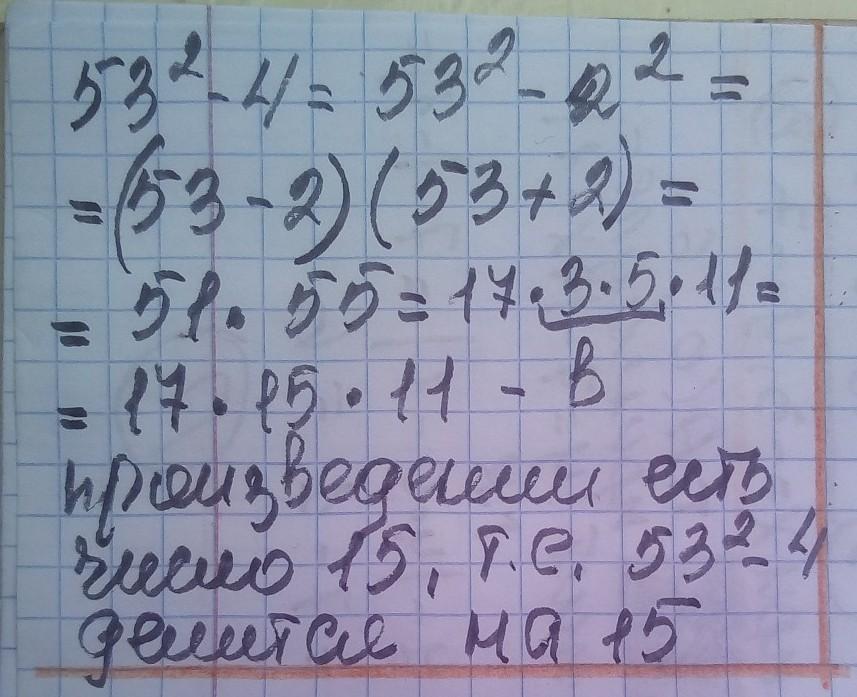 53² - 4 = 53² - 2² =
= (53 - 2) (53 + 2) =
= 51 · 55 = 17 · 3 · 5 · 11 =
= 17 · 15 · 11 - в
произведении есть
число 15, т.е. 53² - 4
делится на 15